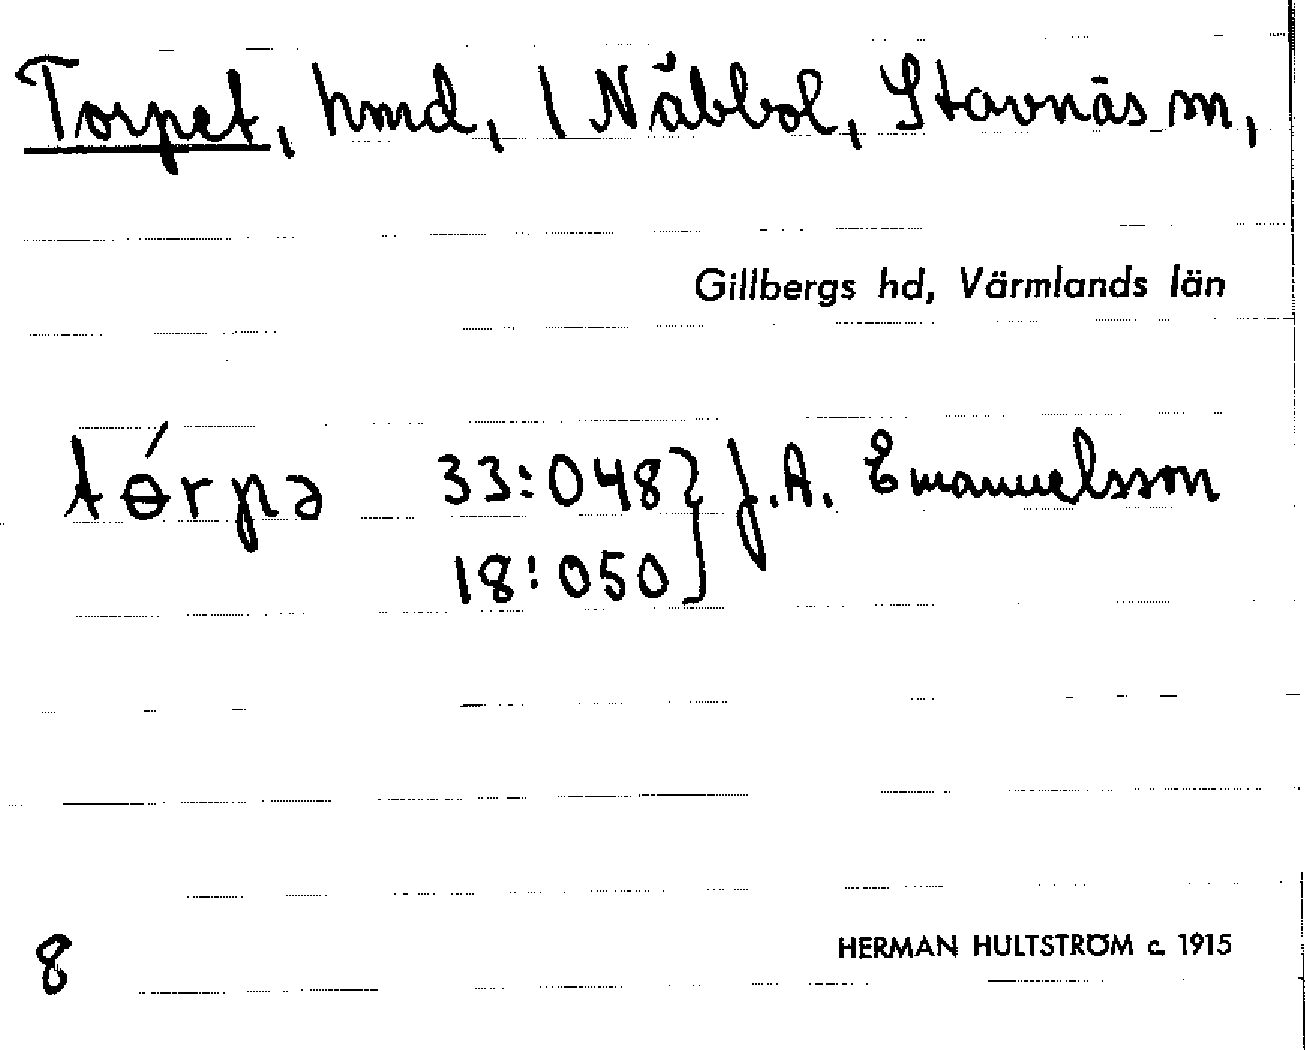 Torpet, hmd, 1 Näbbol, Stavnäs sn,
Gillbergs hd, Värmlands län
tɵ́rpə 33:048 } J.A. Emanuelsson
18:050
8
HERMAN HULTSTRÖM c. 1915